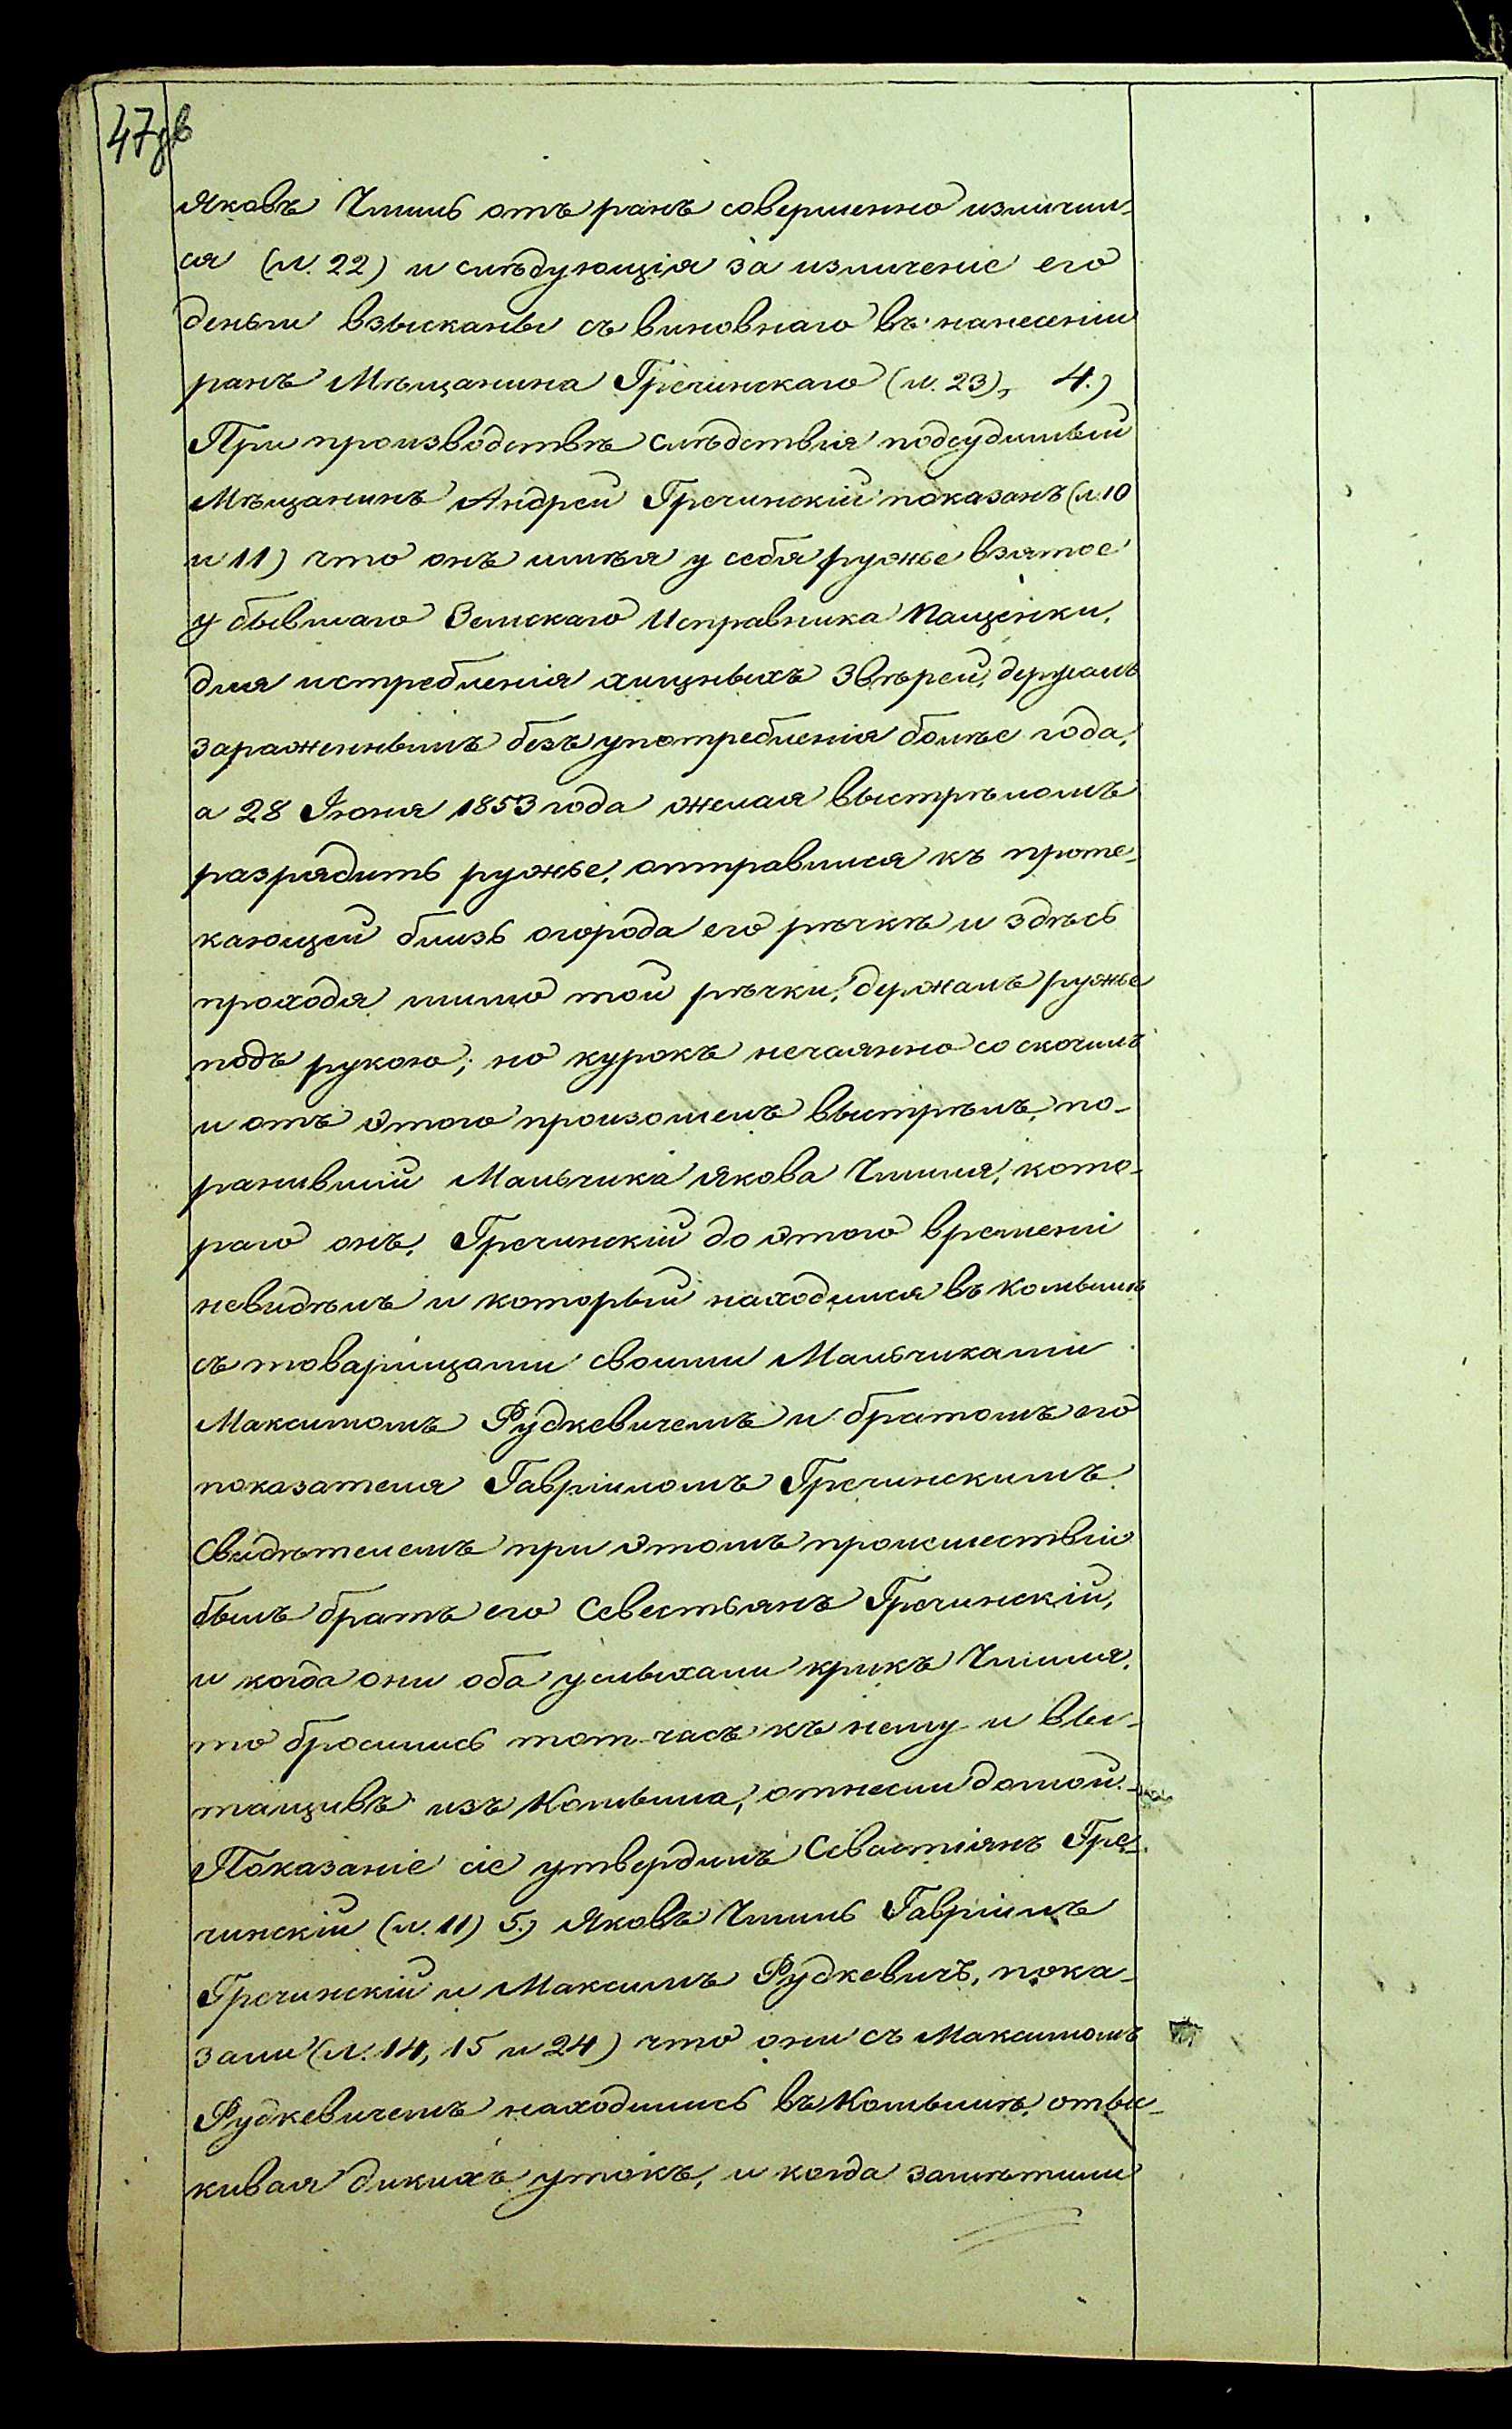 47 зв
Яковъ Чмиль отъ ранъ совершенно изличил-
ся (л. 22) и слѣдующія за изличеніе его
деньги взысканы съ виновнаго въ нанесеніи
ранъ Мѣщанина Гречинскаго (л. 23), 4.)
При производствѣ слѣдствія подсудимый
Мѣщанинъ Андрей Гречинскій показалъ (л. 10
и 11) что онъ имѣя у себя ружье взятое
у бывшаго Земскаго Исправника Пащенки,
для истребленія хищныхъ звѣрей, держалъ
заряженнымъ безъ употребленія болѣе года,
а 28 Іюня 1853 года желая выстрѣломъ
разрядить ружье, отправился къ проте-
кающей близь огорода его рѣчкѣ и здѣсь
проходя мимо той рѣчки, держалъ ружье
подъ рукою; но курокъ нечаянно соскочилъ
и отъ этого произошелъ выстрѣлъ, по-
ранившій Мальчика Якова Чмиля, кото-
раго онъ, Гречинскій до этого времени
невидѣлъ и который находился въ Комышѣ
съ товарищами своими Мальчиками
Максимомъ Рудкевичемъ и братомъ его
показателя Гавріиломъ Гречинскимъ.
Свидѣтелемъ при этомъ происшествіи
былъ братъ его Севестьянъ Гречинскій,
и когда они оба услыхали крикъ Чмиля,
то бросились тот-часъ къ нему и вы-
тащивъ изъ Комыша, отнесли домой.-
Показаніе сіе утвердилъ Севастіянъ Гре-
чинскій (л. 11) 5.) Яковъ Чмиль Гавріилъ
Гречинскій и Максимъ Рудкевичъ, пока-
зали (л. 14, 15 и 24) что они съ Максимомъ
Рудкевичемъ находились въ Комышѣ, оты-
кивая дикихъ утокъ, и когда замѣтили